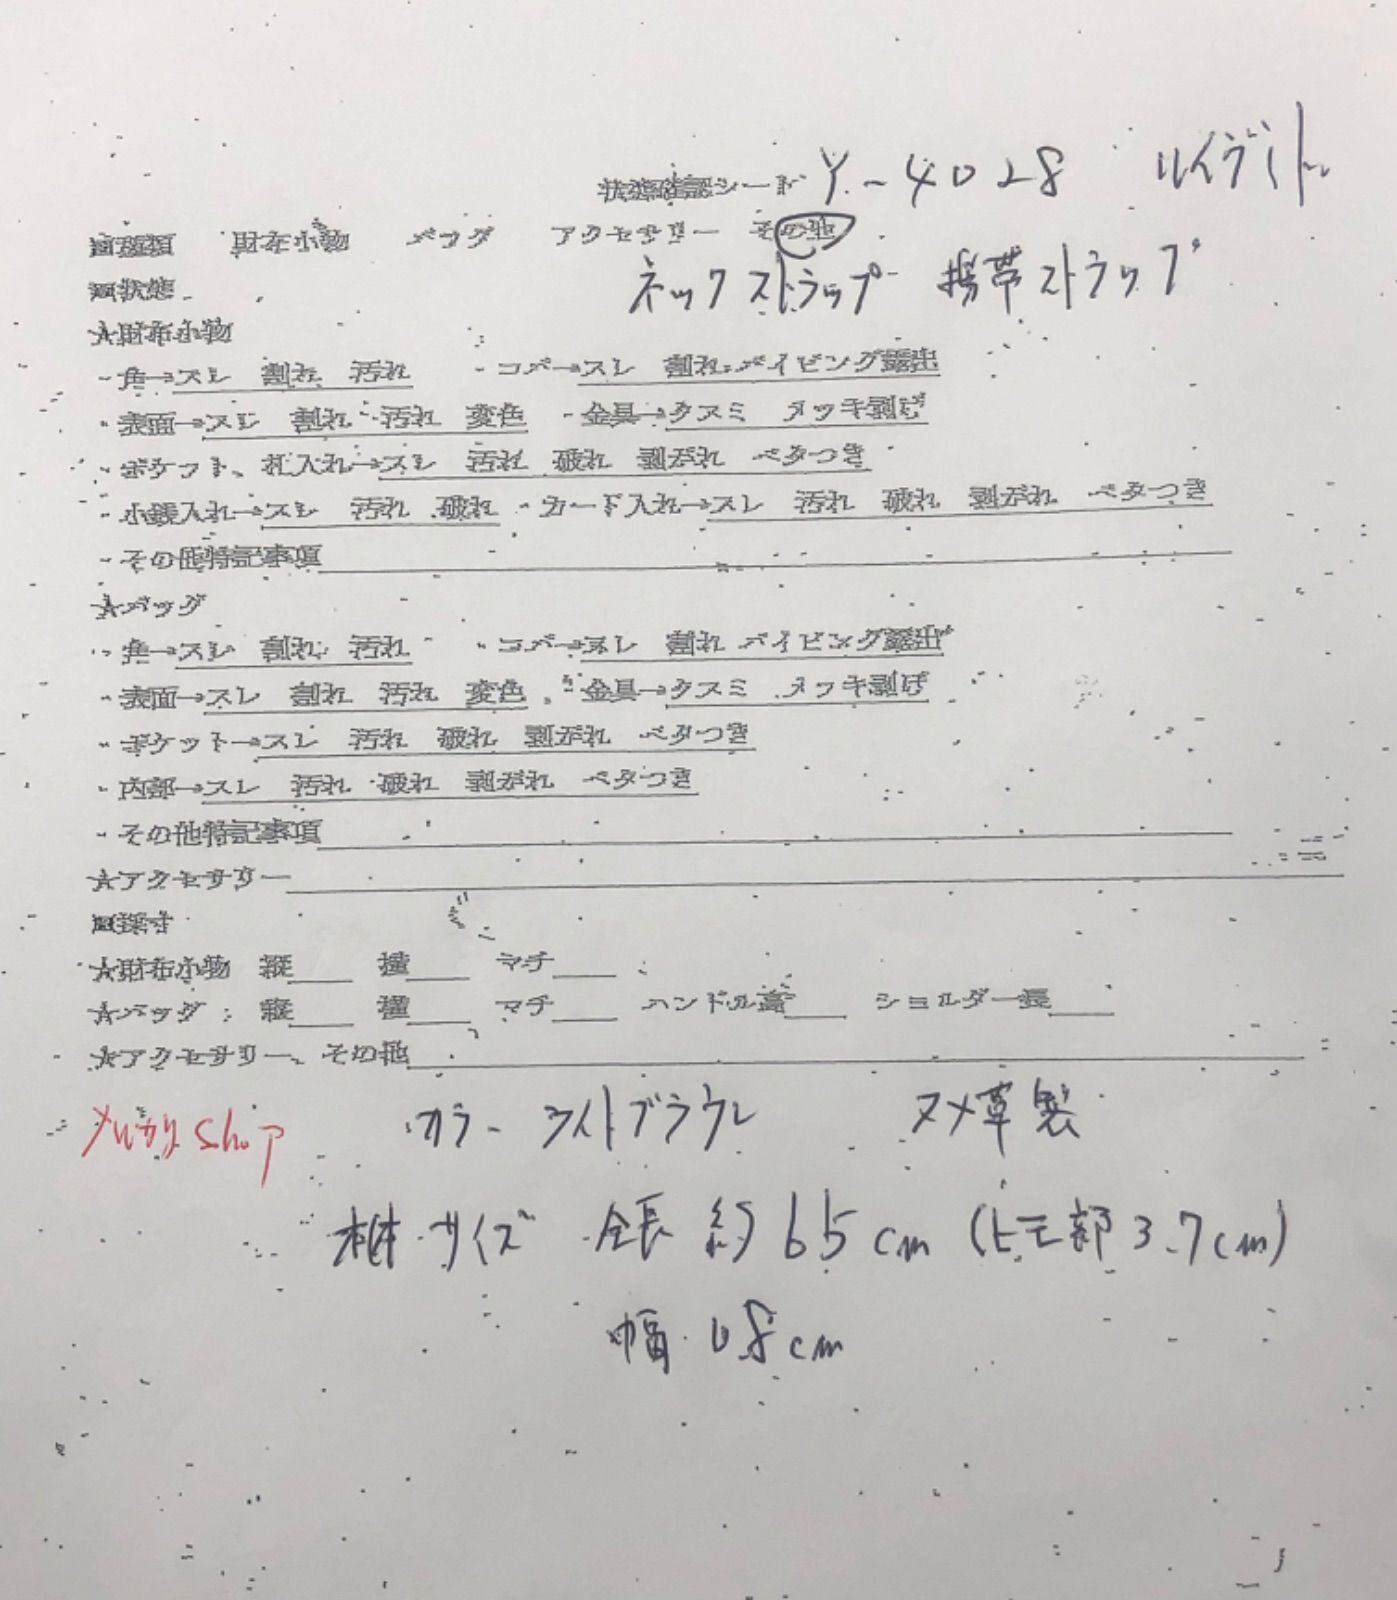 状態確認シート Y-4028 ルイヴィトン
■種類 財布小物 バッグ アクセサリー その他
ネックストラップ 携帯ストラップ
■状態
★財布小物
・角→スレ 割れ 汚れ ・コバ→スレ 割れ パイピング露出
・表面→スレ 割れ 汚れ 変色 ・金具→クスミ メッキ剥げ
・ポケット、札入れ→スレ 汚れ 破れ 剥がれ ベタつき
・小銭入れ→スレ 汚れ 破れ ・カード入れ→スレ 汚れ 破れ 剥がれ ベタつき
・その他特記事項
★バッグ
・角→スレ 割れ 汚れ ・コバ→スレ 割れ パイピング露出
・表面→スレ 割れ 汚れ 変色 ・金具→クスミ メッキ剥げ
・ポケット→スレ 汚れ 破れ 剥がれ ベタつき
・内部→スレ 汚れ 破れ 剥がれ ベタつき
・その他特記事項
★アクセサリー
■採寸
★財布小物 縦 横 マチ
★バッグ : 縦 横 マチ ハンドル高 ショルダー長
★アクセサリー、その他
メルカリshop カラー ライトブラウン ヌメ革製
本体サイズ 全長 約65cm (ヒモ部 3.7cm)
幅 0.8cm